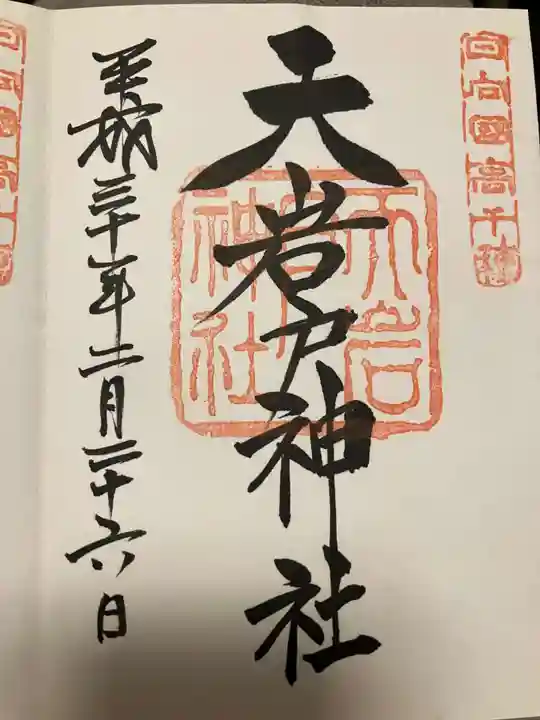 日向國高千穂
天岩戸神社
天岩戸神社
平成三十一年二月二十六日